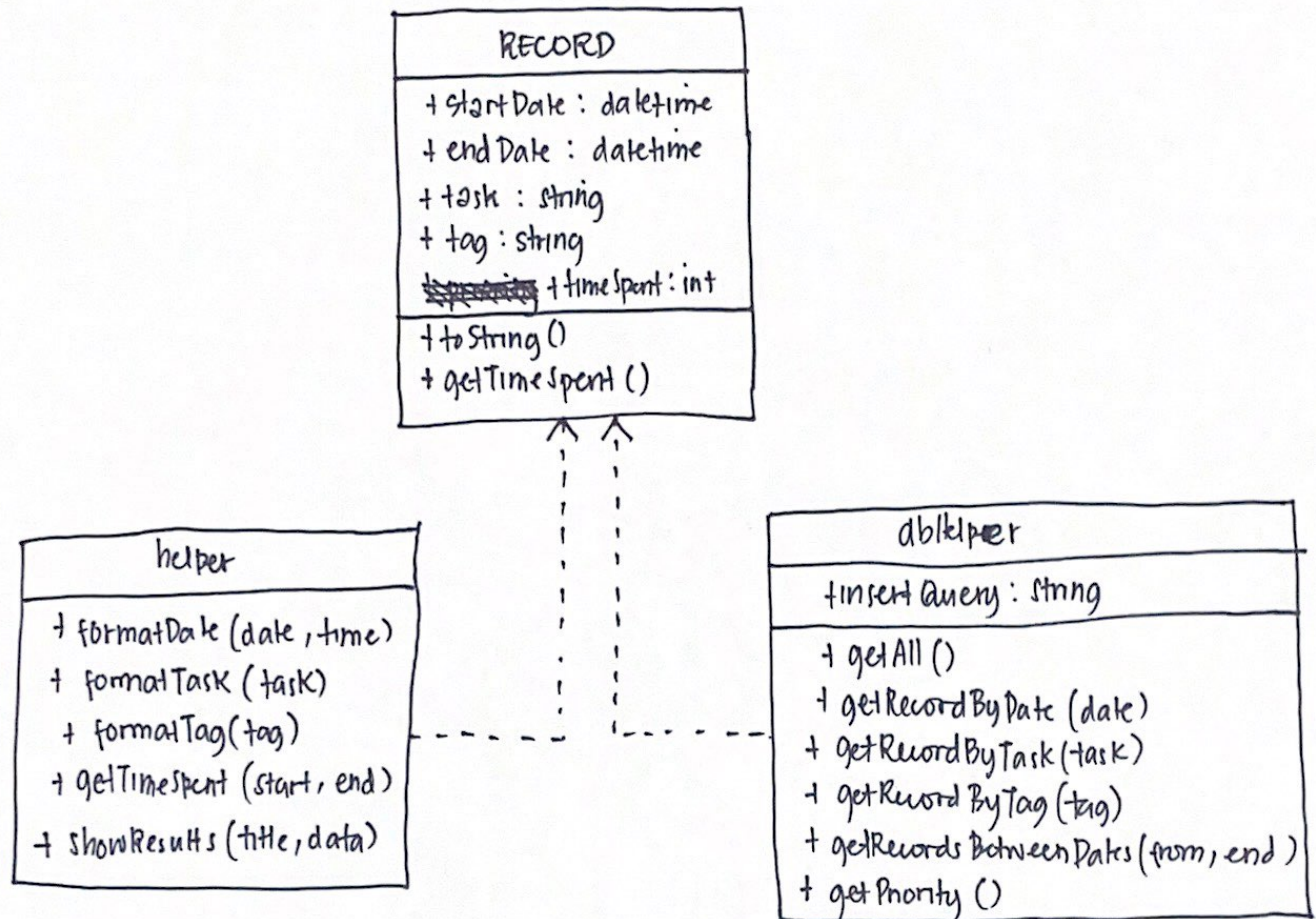 RECORD
+ startDate : datetime
+ endDate : datetime
+ task : string
+ tag : string
+ timeSpent : int
+ toString ()
+ getTimeSpent ()
helper
+ formatDate (date, time)
+ formatTask (task)
+ formatTag (tag)
+ getTimeSpent (start, end)
+ showResults (title, data)
dbHelper
+ insertQuery : string
+ getAll ()
+ getRecordByDate (date)
+ getRecordByTask (task)
+ getRecordByTag (tag)
+ getRecordsBetweenDates (from, end)
+ getPriority ()